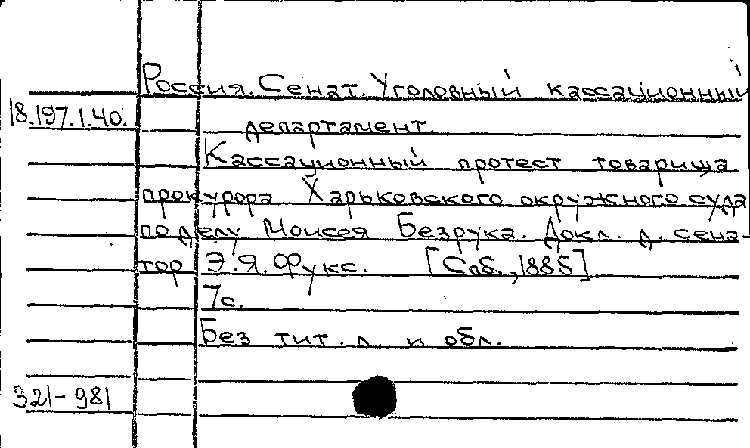 Россия. Сенат. Уголовный кассационный
18.197.1.40.
департамент.
Кассационный протест товарища
прокурора Харьковского окружного суда
по делу Моисея Безрука. Докл. д. сена
тор Э.Я. Фукс. [Спб., 1885]
7с.
Без тит. л. и обл.
321-981